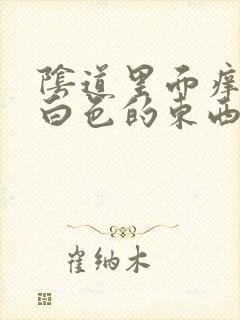 陰道里面痒
白色的东西
崔纳木